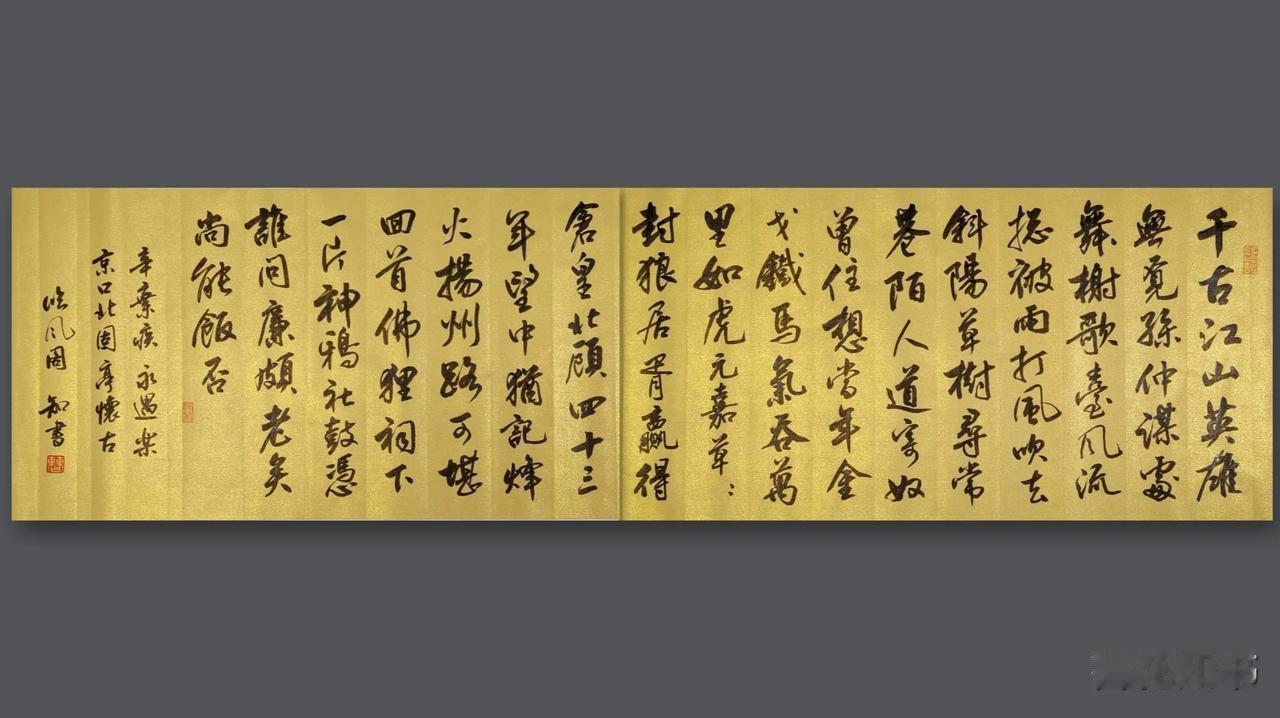 千古江山英雄
無覓孫仲謀處
舞榭歌臺風流
揔被雨打風吹去
斜陽草樹尋常
巷陌人道寄奴
曾住想當年金
戈鐵馬氣吞萬
里如虎元嘉草〻
封狼居胥贏得
倉皇北顧四十三
年望中猶記烽
火揚州路可堪
回首佛狸祠下
一片神鴉社鼓憑
誰問廉頗老矣
尚能飯否
辛棄疾 永遇樂
京口北固亭懷古
風閣 知書